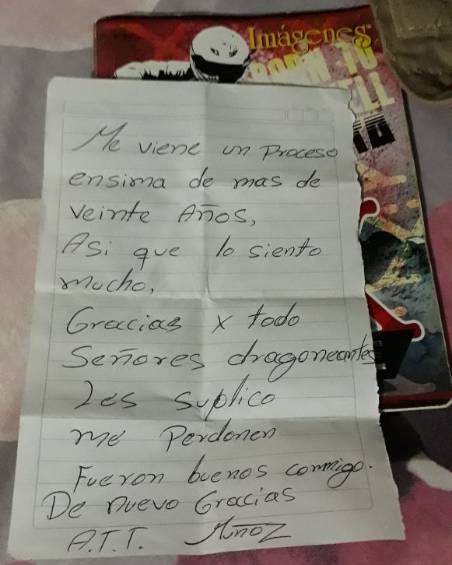 Imágenes
BORN TO
Me viene un Proceso
ensima de mas de
veinte Años,
Asi que lo siento
mucho,
Gracias x todo
Señores dragoneantes
Les suplico
me Perdonen
Fueron buenos conmigo.
De nuevo Gracias
A.T.T. Muñoz